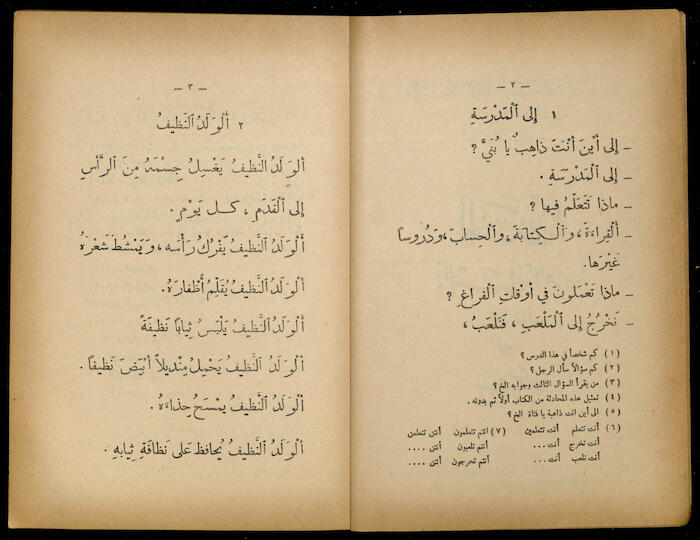 — ٢ —
١ إِلى ٱلْمَدْرَسَةِ
ـ إِلى أَيْنَ أَنْتَ ذاهِبٌ يا بُنَيَّ ؟
ـ إِلى ٱلْمَدْرَسَةِ .
ـ ماذا تَتَعَلَّمُ فيها ؟
ـ ٱلْقِراءَةَ، وَٱلْكِتابَةَ، وَٱلْحِسابَ، وَدُروساً
غَيْرَها.
ـ ماذا تَعْمَلونَ في أَوْقاتِ ٱلْفَراغِ ؟
ـ نَخْرُجُ إِلى ٱلْمَلْعَبِ ، فَنَلْعَبُ ،
(١) كم شخصاً في هذا الدرس ؟
(٢) كم سؤالاً سأل الرجل ؟
(٣) من يقرأ السؤال الثالث وجوابه الخ ؟
(٤) تمثيل هذه المحادثة من الكتاب أولاً ثم بدونه .
(٥) الى أين انت ذاهبة يا فتاة الخ ؟
(٦) أنت تتعلم أنت تتعلمين (٧) انتم تتعلمون انتن تتعلمن
أنت تخرج أنت ... انتم تلعبون انتن ....
أنت تلعب أنت ... انتم تخرجون انتن ....
— ٣ —
٢ أَلْوَلَدُ ٱلنَّظيفُ
أَلْوَلَدُ ٱلنَّظيفُ يَغْسِلُ جِسْمَهُ مِنَ ٱلرَّأْسِ
إِلى ٱلْقَدَمِ ، كُلَّ يَوْمٍ .
أَلْوَلَدُ ٱلنَّظيفُ يَفْرُكُ رَأْسَه، وَيَمْشُطُ شَعْرَهُ
أَلْوَلَدُ ٱلنَّظيفُ يُقَلِّمُ أَظْفارَهُ.
أَلْوَلَدُ ٱلنَّظيفُ يَلْبَسُ ثِياباً نَظيفَةً
أَلْوَلَدُ ٱلنَّظيفُ يَحْمِلُ مِنْديلاً أَبْيَضَ نَظيفاً .
أَلْوَلَدُ ٱلنَّظيفُ يَمْسَحُ حِذاءَهُ .
أَلْوَلَدُ ٱلنَّظيفُ يُحافِظُ عَلى نَظافَةِ ثِيابِهِ .